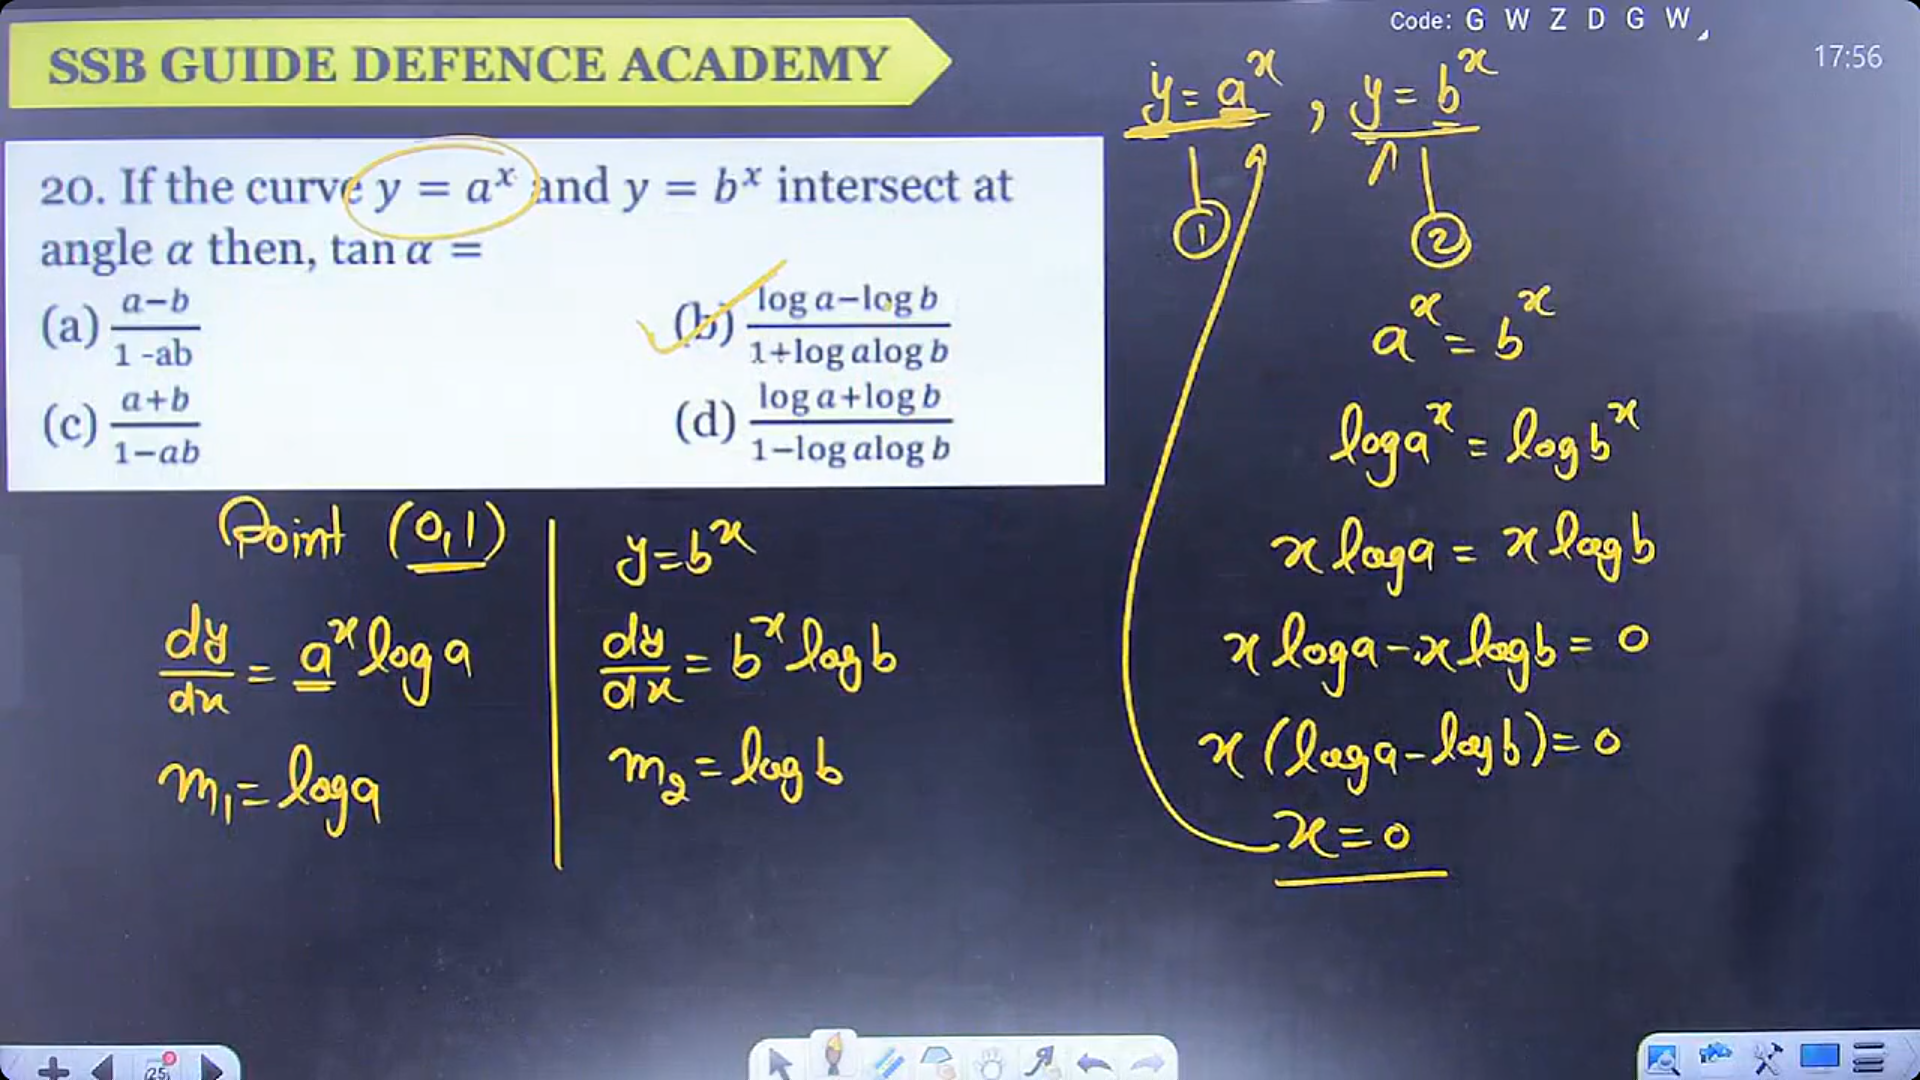 Code: G W Z D G W
17:56
SSB GUIDE DEFENCE ACADEMY
20. If the curve y = aˣ and y = bˣ intersect at
angle α then, tan α =
(a) a−b / 1 -ab
(b) log a−log b / 1+log alog b
(c) a+b / 1−ab
(d) log a+log b / 1−log alog b
Point (0,1)
dy/dx = aˣ log a
m₁ = log a
y = bˣ
dy/dx = bˣ log b
m₂ = log b
y = aˣ , y = bˣ
1 2
aˣ = bˣ
log aˣ = log bˣ
x log a = x log b
x log a - x log b = 0
x (log a - log b) = 0
x = 0
25